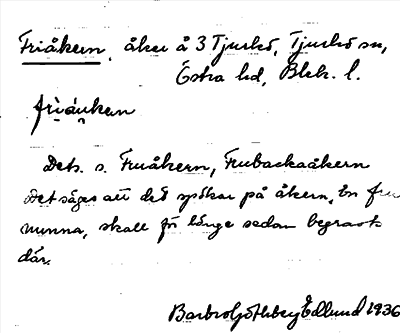 Friåkern, åker å 3 Tjurkö, Tjurkö sn,
Östra hd, Blek. l.
Dets. s. Fruåkern, Frubackaåkern
Det säges att det spökar på åkern, En fru
nunna, skall för länge sedan begravts
där.
Barbro Göthberg Edlund 1936